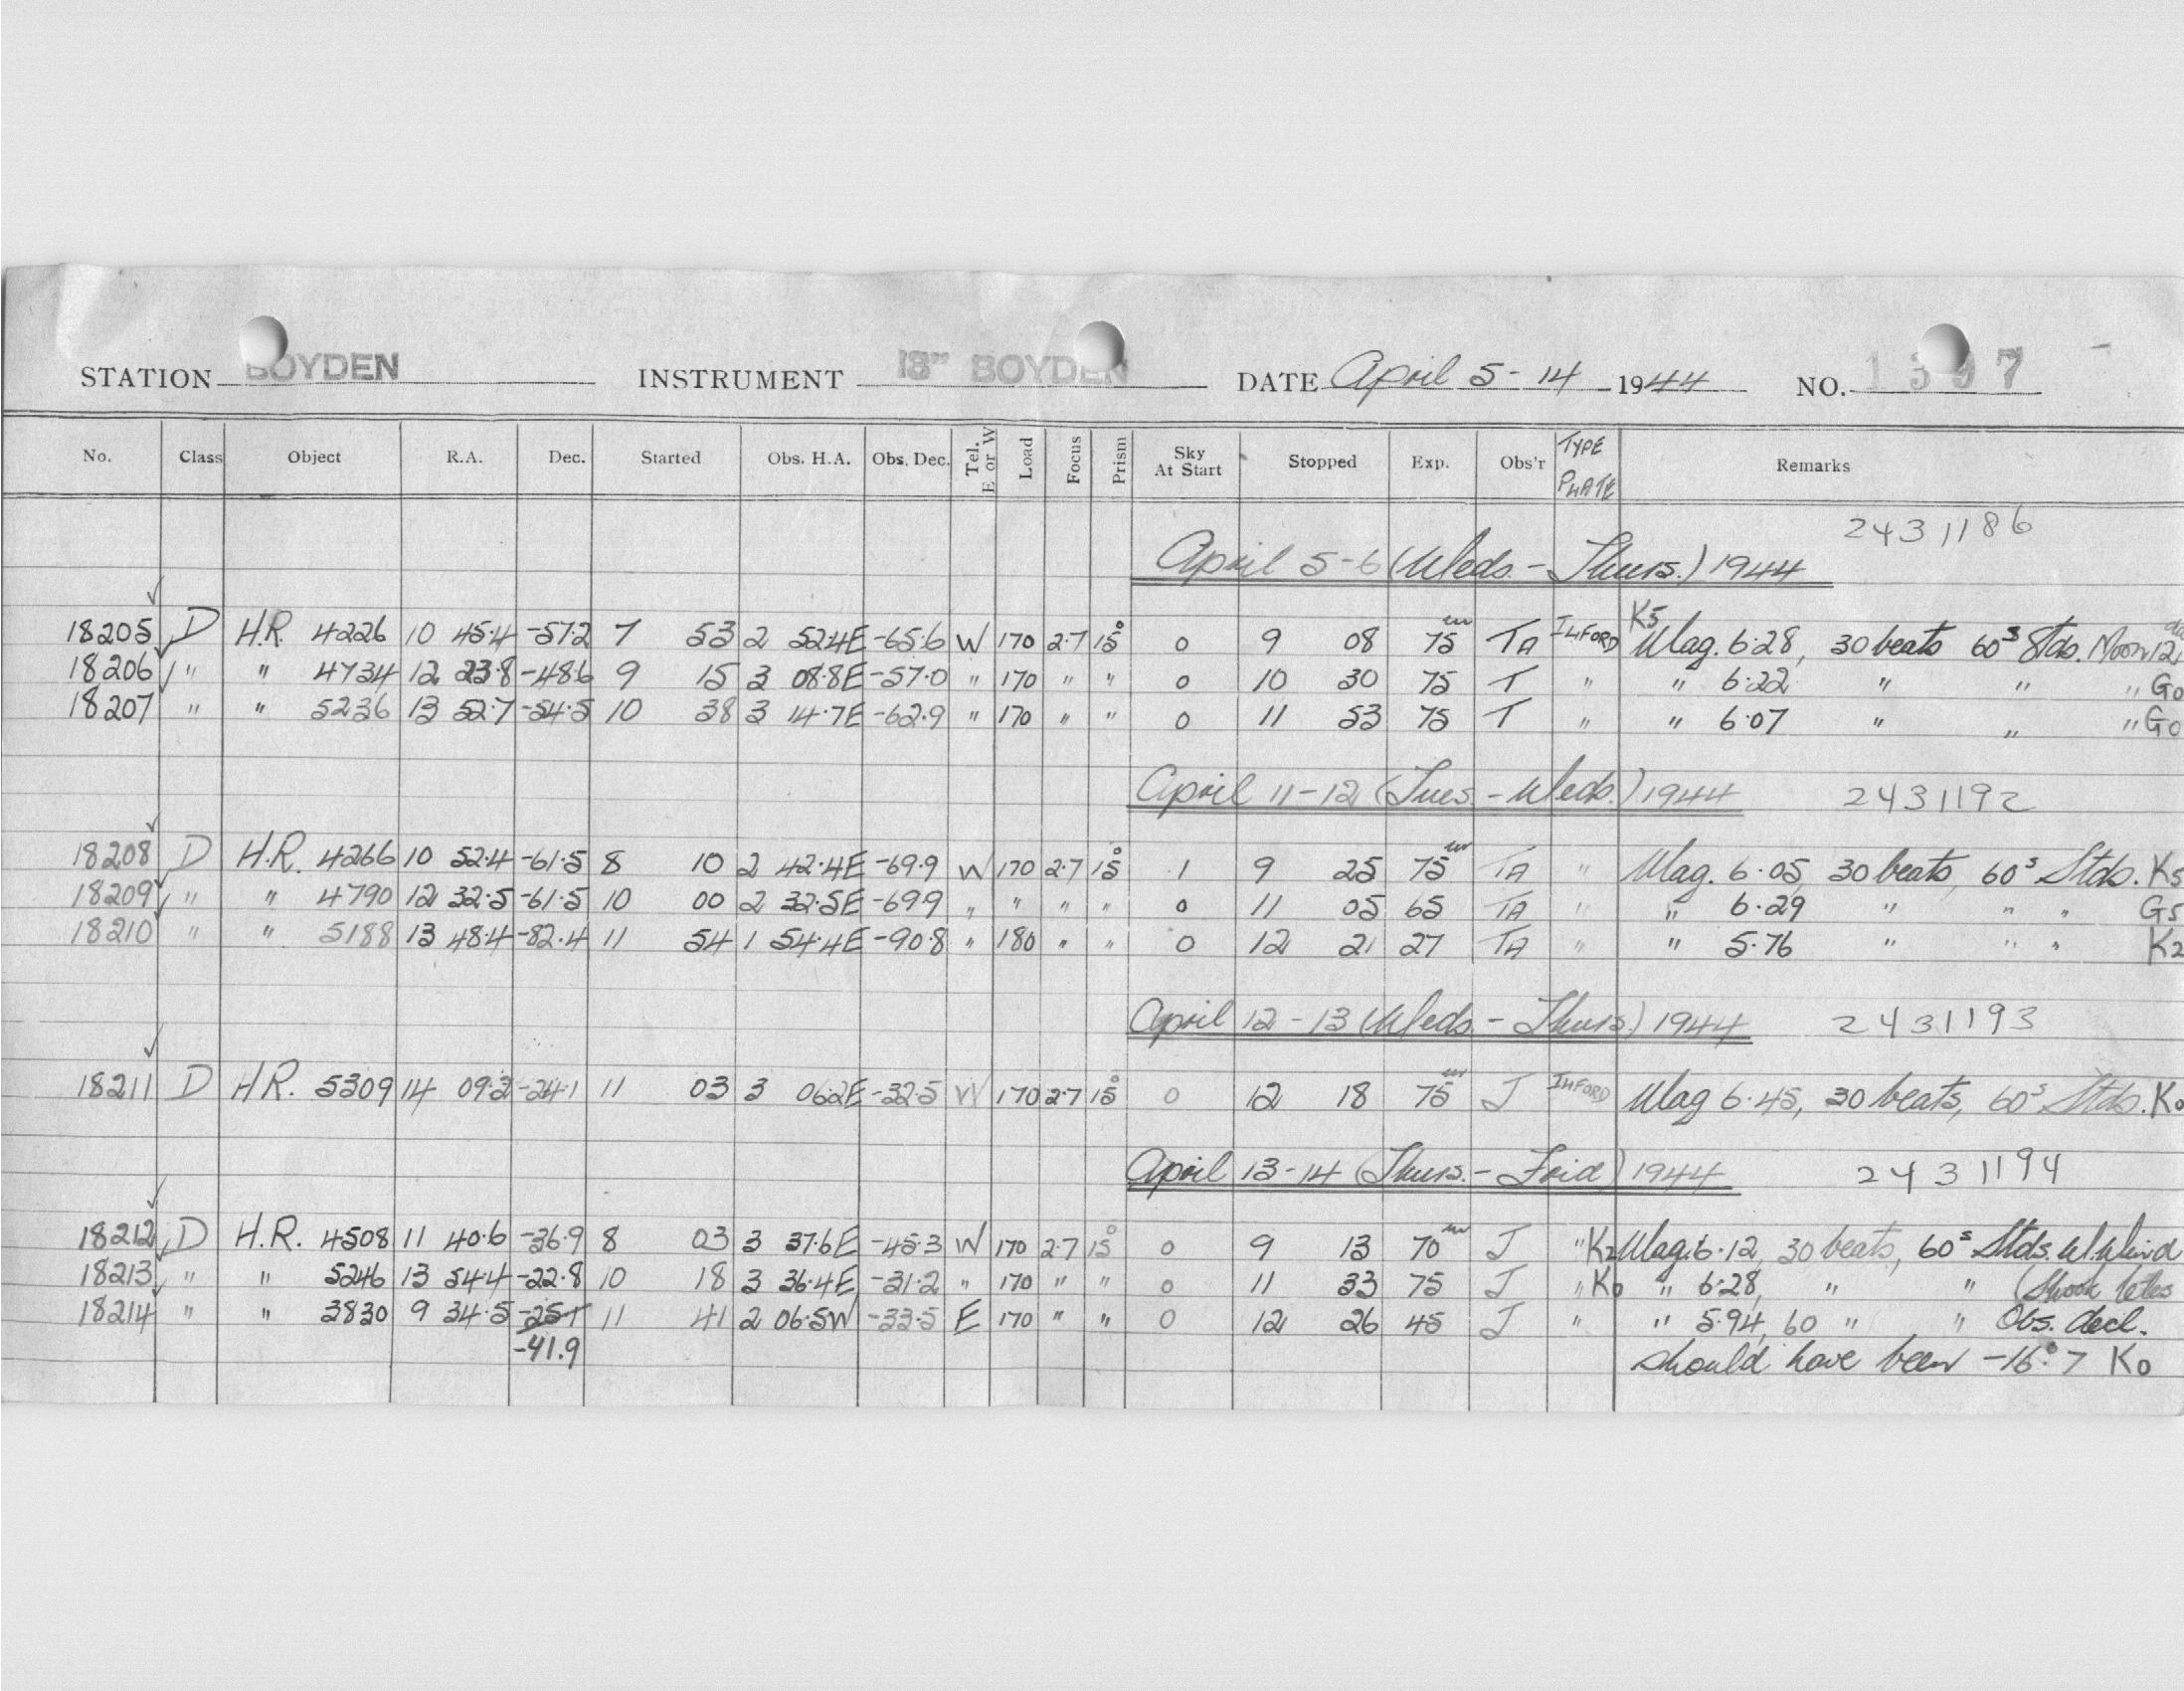 STATION BOYDEN INSTRUMENT 18" BOYDEN DATE April 5-14 1944 NO. 1397
No. Class Object R.A. Dec. Started Obs. H.A. Obs. Dec. Tel. E or W Load Focus Prism Sky At Start Stopped Exp. Obs'r TYPE PLATE Remarks
2431186
April 5-6 (Weds.-Thurs.) 1944
K5
18205 D H.R. 4226 10 45.4 -57.2 7 53 2 52.4E -65.6 W 170 2.7 15° 0 9 08 75m TA ILFORD Mag. 6.28, 30 beats 60s Stds. Moon 12
18206 " " 4734 12 23.8 -48.6 9 15 3 08.8E -57.0 " 170 " " 0 10 30 75 T " " 6.22 " " " G0
18207 " " 5236 13 52.7 -54.5 10 38 3 14.7E -62.9 " 170 " " 0 11 53 75 T " " 6.07 " " " G0
April 11-12 (Tues.-Weds.) 1944 2431192
18208 D H.R. 4266 10 52.4 -61.5 8 10 2 42.4E -69.9 W 170 2.7 15° 1 9 25 75m TA " Mag. 6.05, 30 beats, 60s Stds. K5
18209 " " 4790 12 32.5 -61.5 10 00 2 32.5E -69.9 " " " " 0 11 05 65 TA " " 6.29 " " " G5
18210 " " 5188 13 48.4 -82.4 11 54 1 54.4E -90.8 " 180 " " 0 12 21 27 TA " " 5.76 " " " K2
April 12-13 (Weds.-Thurs.) 1944 2431193
18211 D H.R. 5309 14 09.2 -24.1 11 03 3 06.2E -32.5 W 170 2.7 15° 0 12 18 75m J ILFORD Mag 6.45, 30 beats, 60s Stds. K0
April 13-14 (Thurs.-Frid) 1944 2431194
18212 D H.R. 4508 11 40.6 -36.9 8 03 3 37.6E -45.3 W 170 2.7 15° 0 9 13 70m J " K2 Mag. 6.12, 30 beats, 60s Stds. W. Wind
18213 " " 5246 13 54.4 -22.8 10 18 3 36.4E -31.2 " 170 " " 0 11 33 75 J " K0 " 6.28, " " (Shook teles
18214 " " 3830 9 34.5 -25.1 11 41 2 06.5W -33.5 E 170 " " 0 12 26 45 J " " 5.94, 60 " " Obs. decl.
-41.9 should have been -16°.7 K0